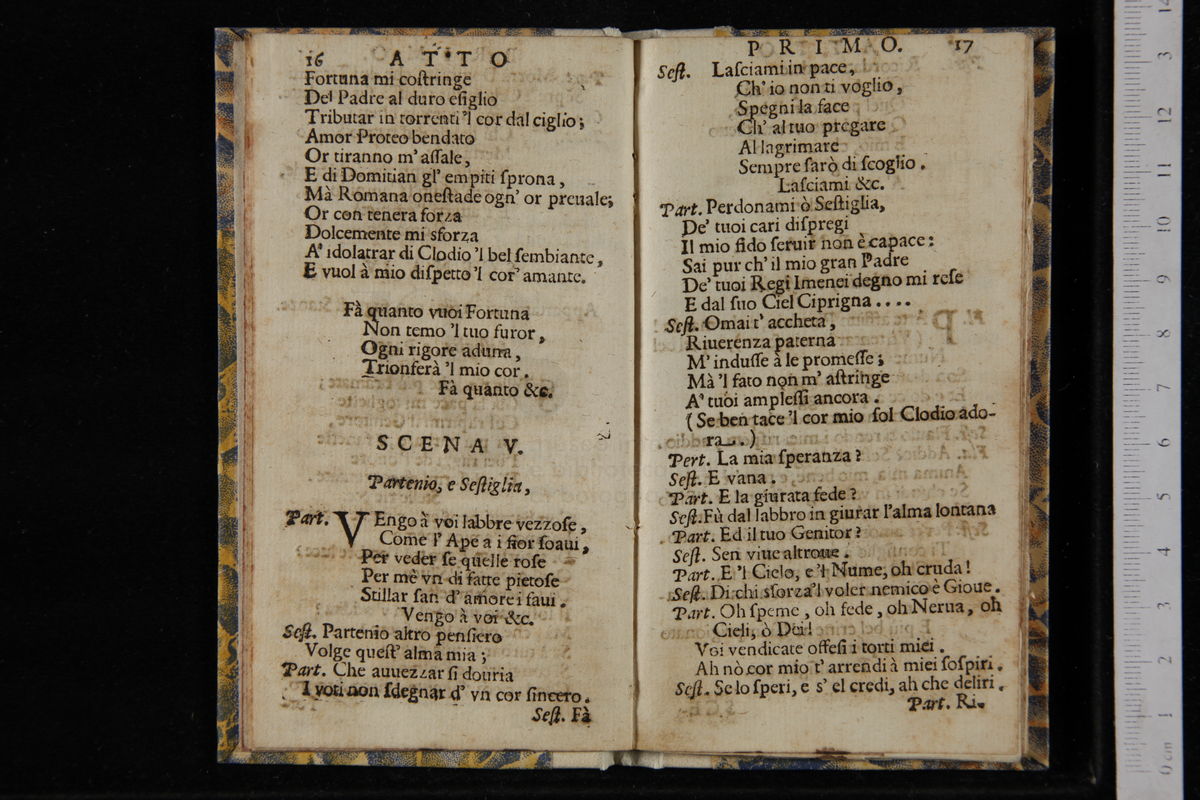 16 ATTO
Fortuna mi coſtringe
Del Padre al duro eſiglio
Tributar in torrenti 'l cor dal ciglio;
Amor Proteo bendato
Or tiranno m' aſſale,
E di Domitian gl' empiti ſprona,
Mà Romana oneſtade ogn' or preuale;
Or con tenera forza
Dolcemente mi sforza
A' idolatrar di Clodio 'l bel ſembiante,
E vuol à mio diſpetto 'l cor' amante.
Fà quanto vuoi Fortuna
Non temo 'l tuo furor,
Ogni rigore aduna,
Trionferà 'l mio cor.
Fà quanto &c.
SCENA V.
Partenio, e Seſtiglia,
Part. VEngo à voi labbre vezzoſe,
Come l' Ape a i fior ſoaui,
Per veder ſe quelle roſe
Per mè vn di fatte pietoſe
Stillar ſan d' amore i faui.
Vengo à voi &c.
Seſt. Partenio altro penſiero
Volge queſt' alma mia;
Part. Che auuezzar ſi douria
I voti non ſdegnar d' vn cor ſincero.
Seſt. Fà
PRIMO. 17
Seſt. Laſciami in pace,
Ch' io non ti voglio,
Spegni la face
Ch' al tuo pregare
Al lagrimare
Sempre ſarò di ſcoglio.
Laſciami &c.
Part. Perdonami ò Seſtiglia,
De' tuoi cari diſpregi
Il mio fido ſeruir non è capace:
Sai pur ch' il mio gran Padre
De' tuoi Regi Imenei degno mi reſe
E dal ſuo Ciel Ciprigna....
Seſt. Omai t' accheta,
Riuerenza paterna
M' induſſe à le promeſſe;
Mà 'l fato non m' aſtringe
A' tuoi ampleſſi ancora.
(Se ben tace 'l cor mio ſol Clodio ado-
ra.)
Pert. La mia ſperanza?
Seſt. E vana.
Part. E la giurata fede?
Seſt. Fù dal labbro in giurar l'alma lontana
Part. Ed il tuo Genitor?
Seſt. Sen viue altroue.
Part. E 'l Cielo, e 'l Nume, oh cruda!
Seſt. Di chi sforza 'l voler nemico è Gioue.
Part. Oh ſpeme, oh fede, oh Nerua, oh
Cieli, ò Dei!
Voi vendicate offeſi i torti miei.
Ah nò cor mio t' arrendi à miei ſoſpiri.
Seſt. Se lo ſperi, e s' el credi, ah che deliri.
Part. Ri.
0 cm 1 2 3 4 5 6 7 8 9 10 11 12 13 14